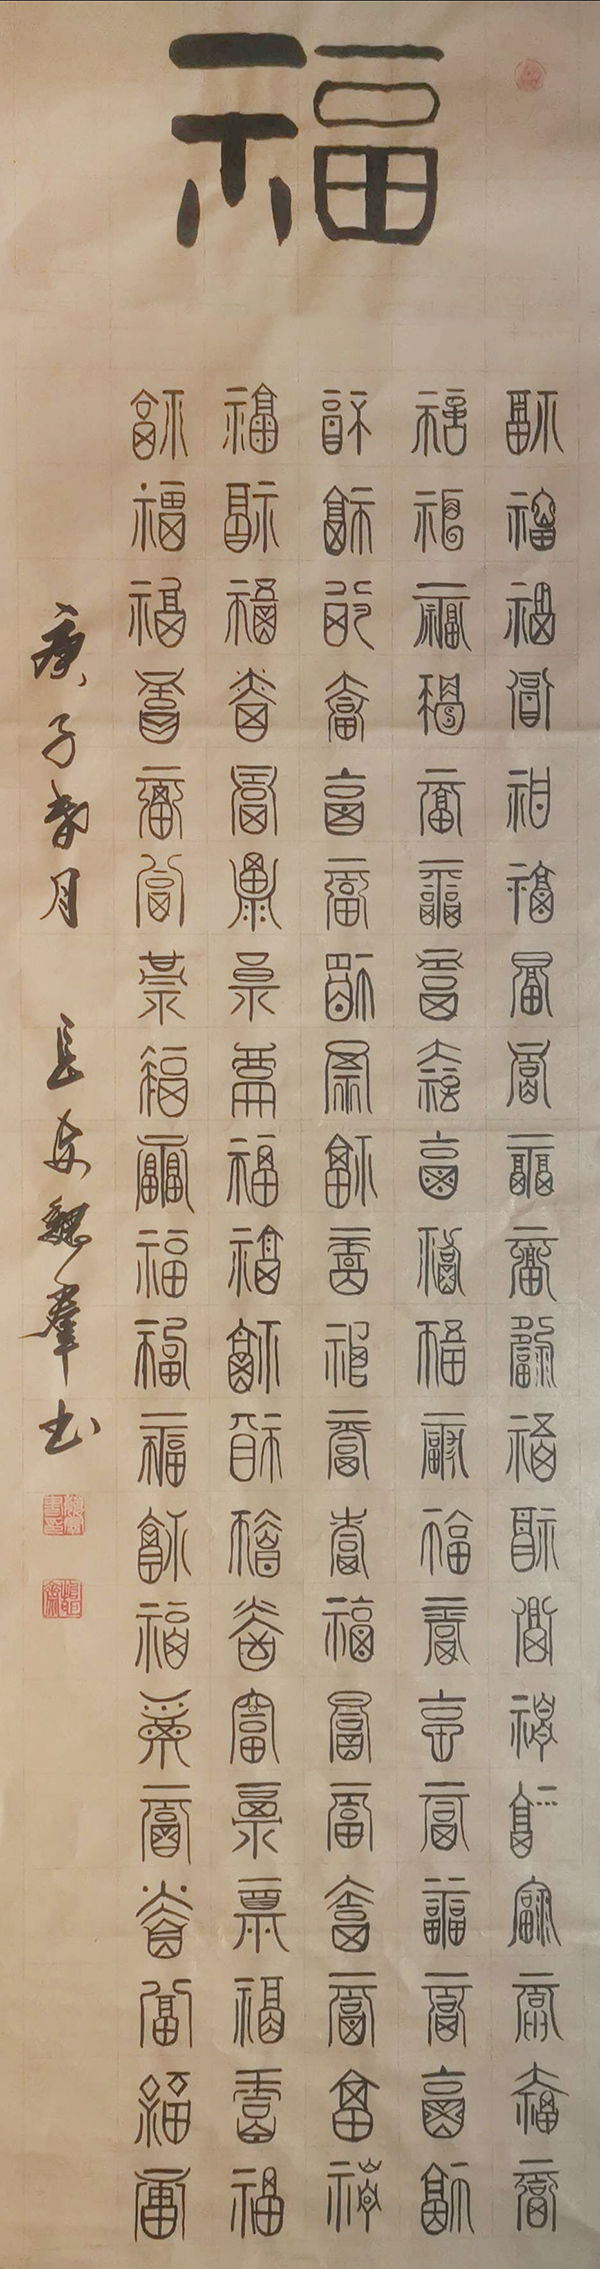 福
福福福福福福福福福福福福福福福福福福福福
福福福福福福福福福福福福福福福福福福福福
福福福福福福福福福福福福福福福福福福福福
福福福福福福福福福福福福福福福福福福福福
福福福福福福福福福福福福福福福福福福福福
庚子春月 長安魏羣书